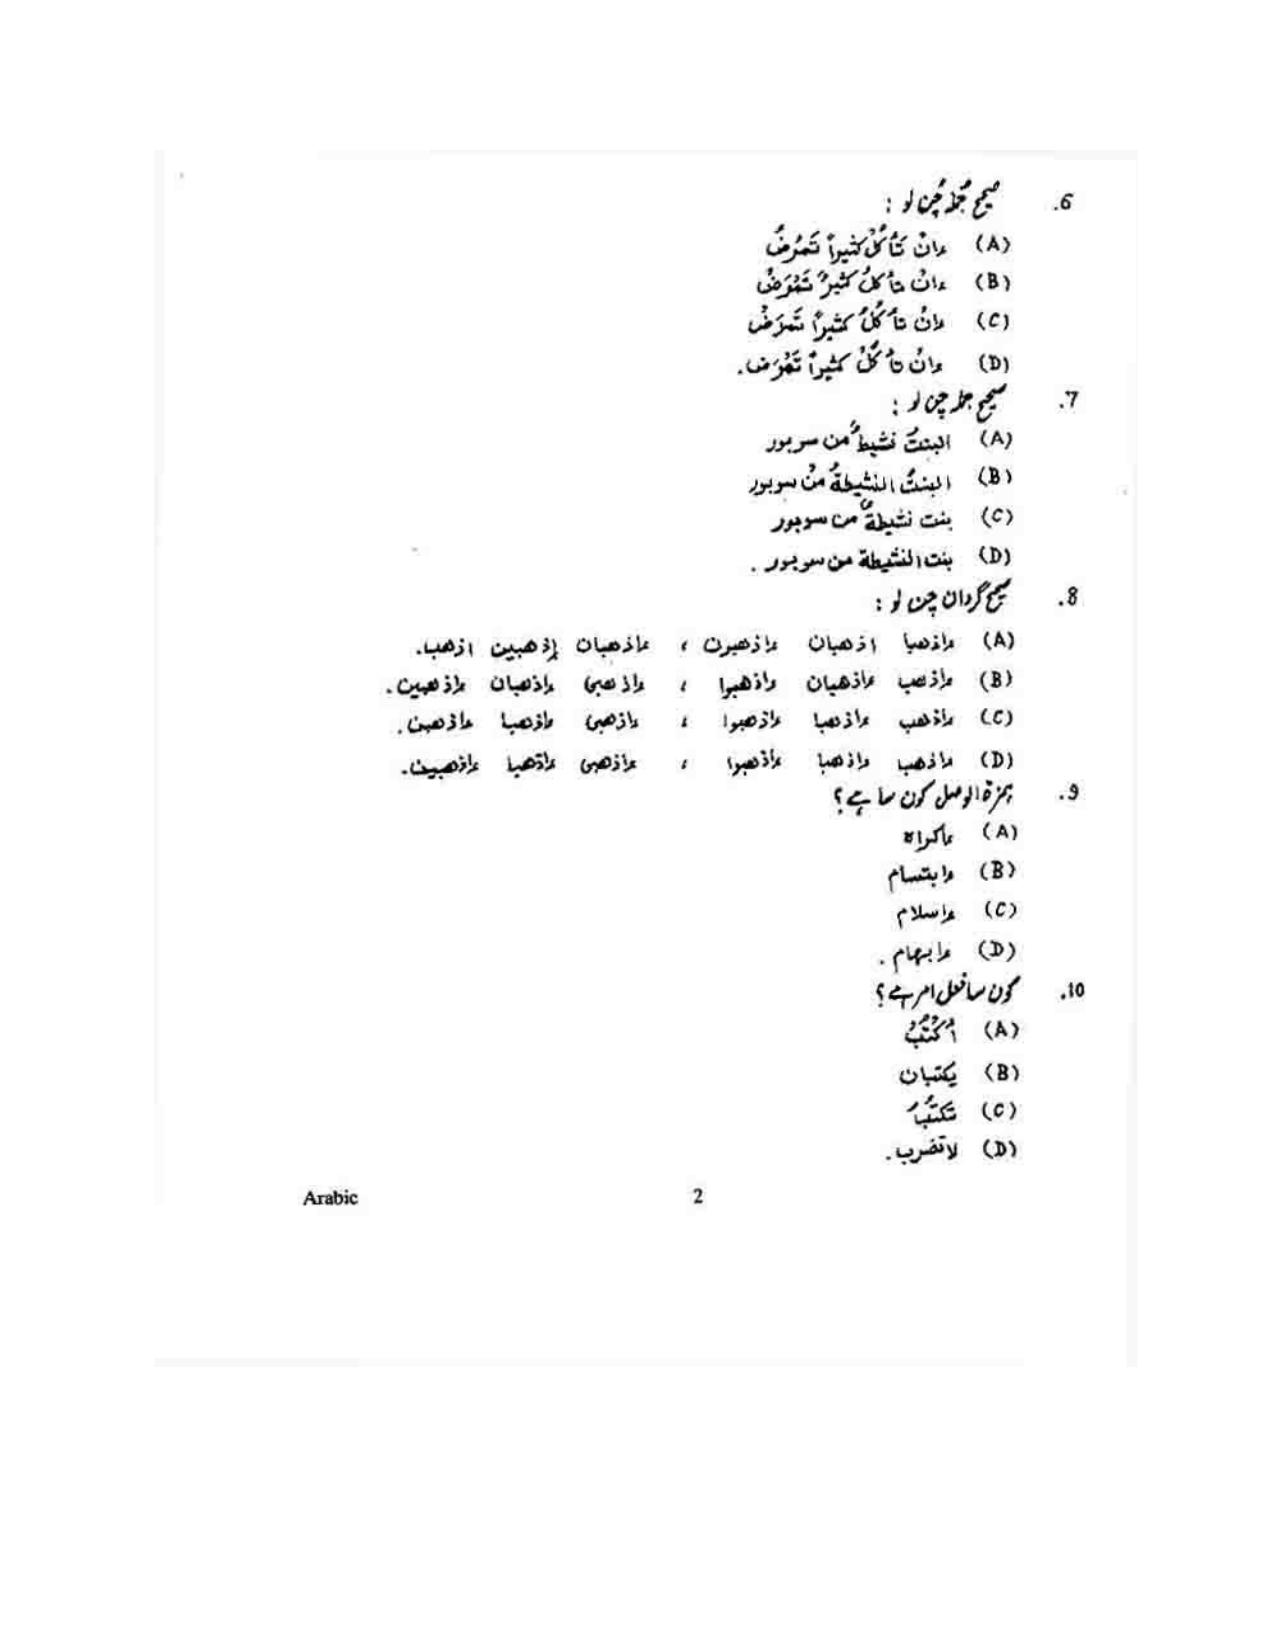 6. صحیح جملہ چُن لو :
(A) إنْ تَأكُلْ كثيراً تَمرُضُ
(B) إنْ تأكلُ كثيرٌ تَمْرَضُ
(C) إنْ تأكُلُ كثيراً تَمرَضُ
(D) إنْ تأكُلْ كثيراً تَمْرَض.
7. صحیح جملہ چن لو :
(A) البنتُ نشيطٌ من سوبور
(B) البنتُ النشيطةُ منْ سوبور
(C) بنت نشيطةٌ من سوبور
(D) بنت النشيطة من سوبور .
8. صحیح گردان چن لو :
(A) إذهبا اذهبان إذهبون ، إذهبان إذهبين اذهب.
(B) إذهب إذهبان إذهبوا ، إذهبي إذهبان إذهبين.
(C) إذهب إذهبا إذهبوا ، إذهبي إذهبا إذهبن.
(D) إذهب إذهبا إذهبوا ، إذهبي إذهبا إذهبين.
9. ہمزۃ الوصل کون سا ہے؟
(A) إكراه
(B) إبتسام
(C) إسلام
(D) إبهام .
10. کون سا فعل امر ہے؟
(A) اُكْتُبْ
(B) يكتبان
(C) تَكتُبُ
(D) لا تضرب .
Arabic 2